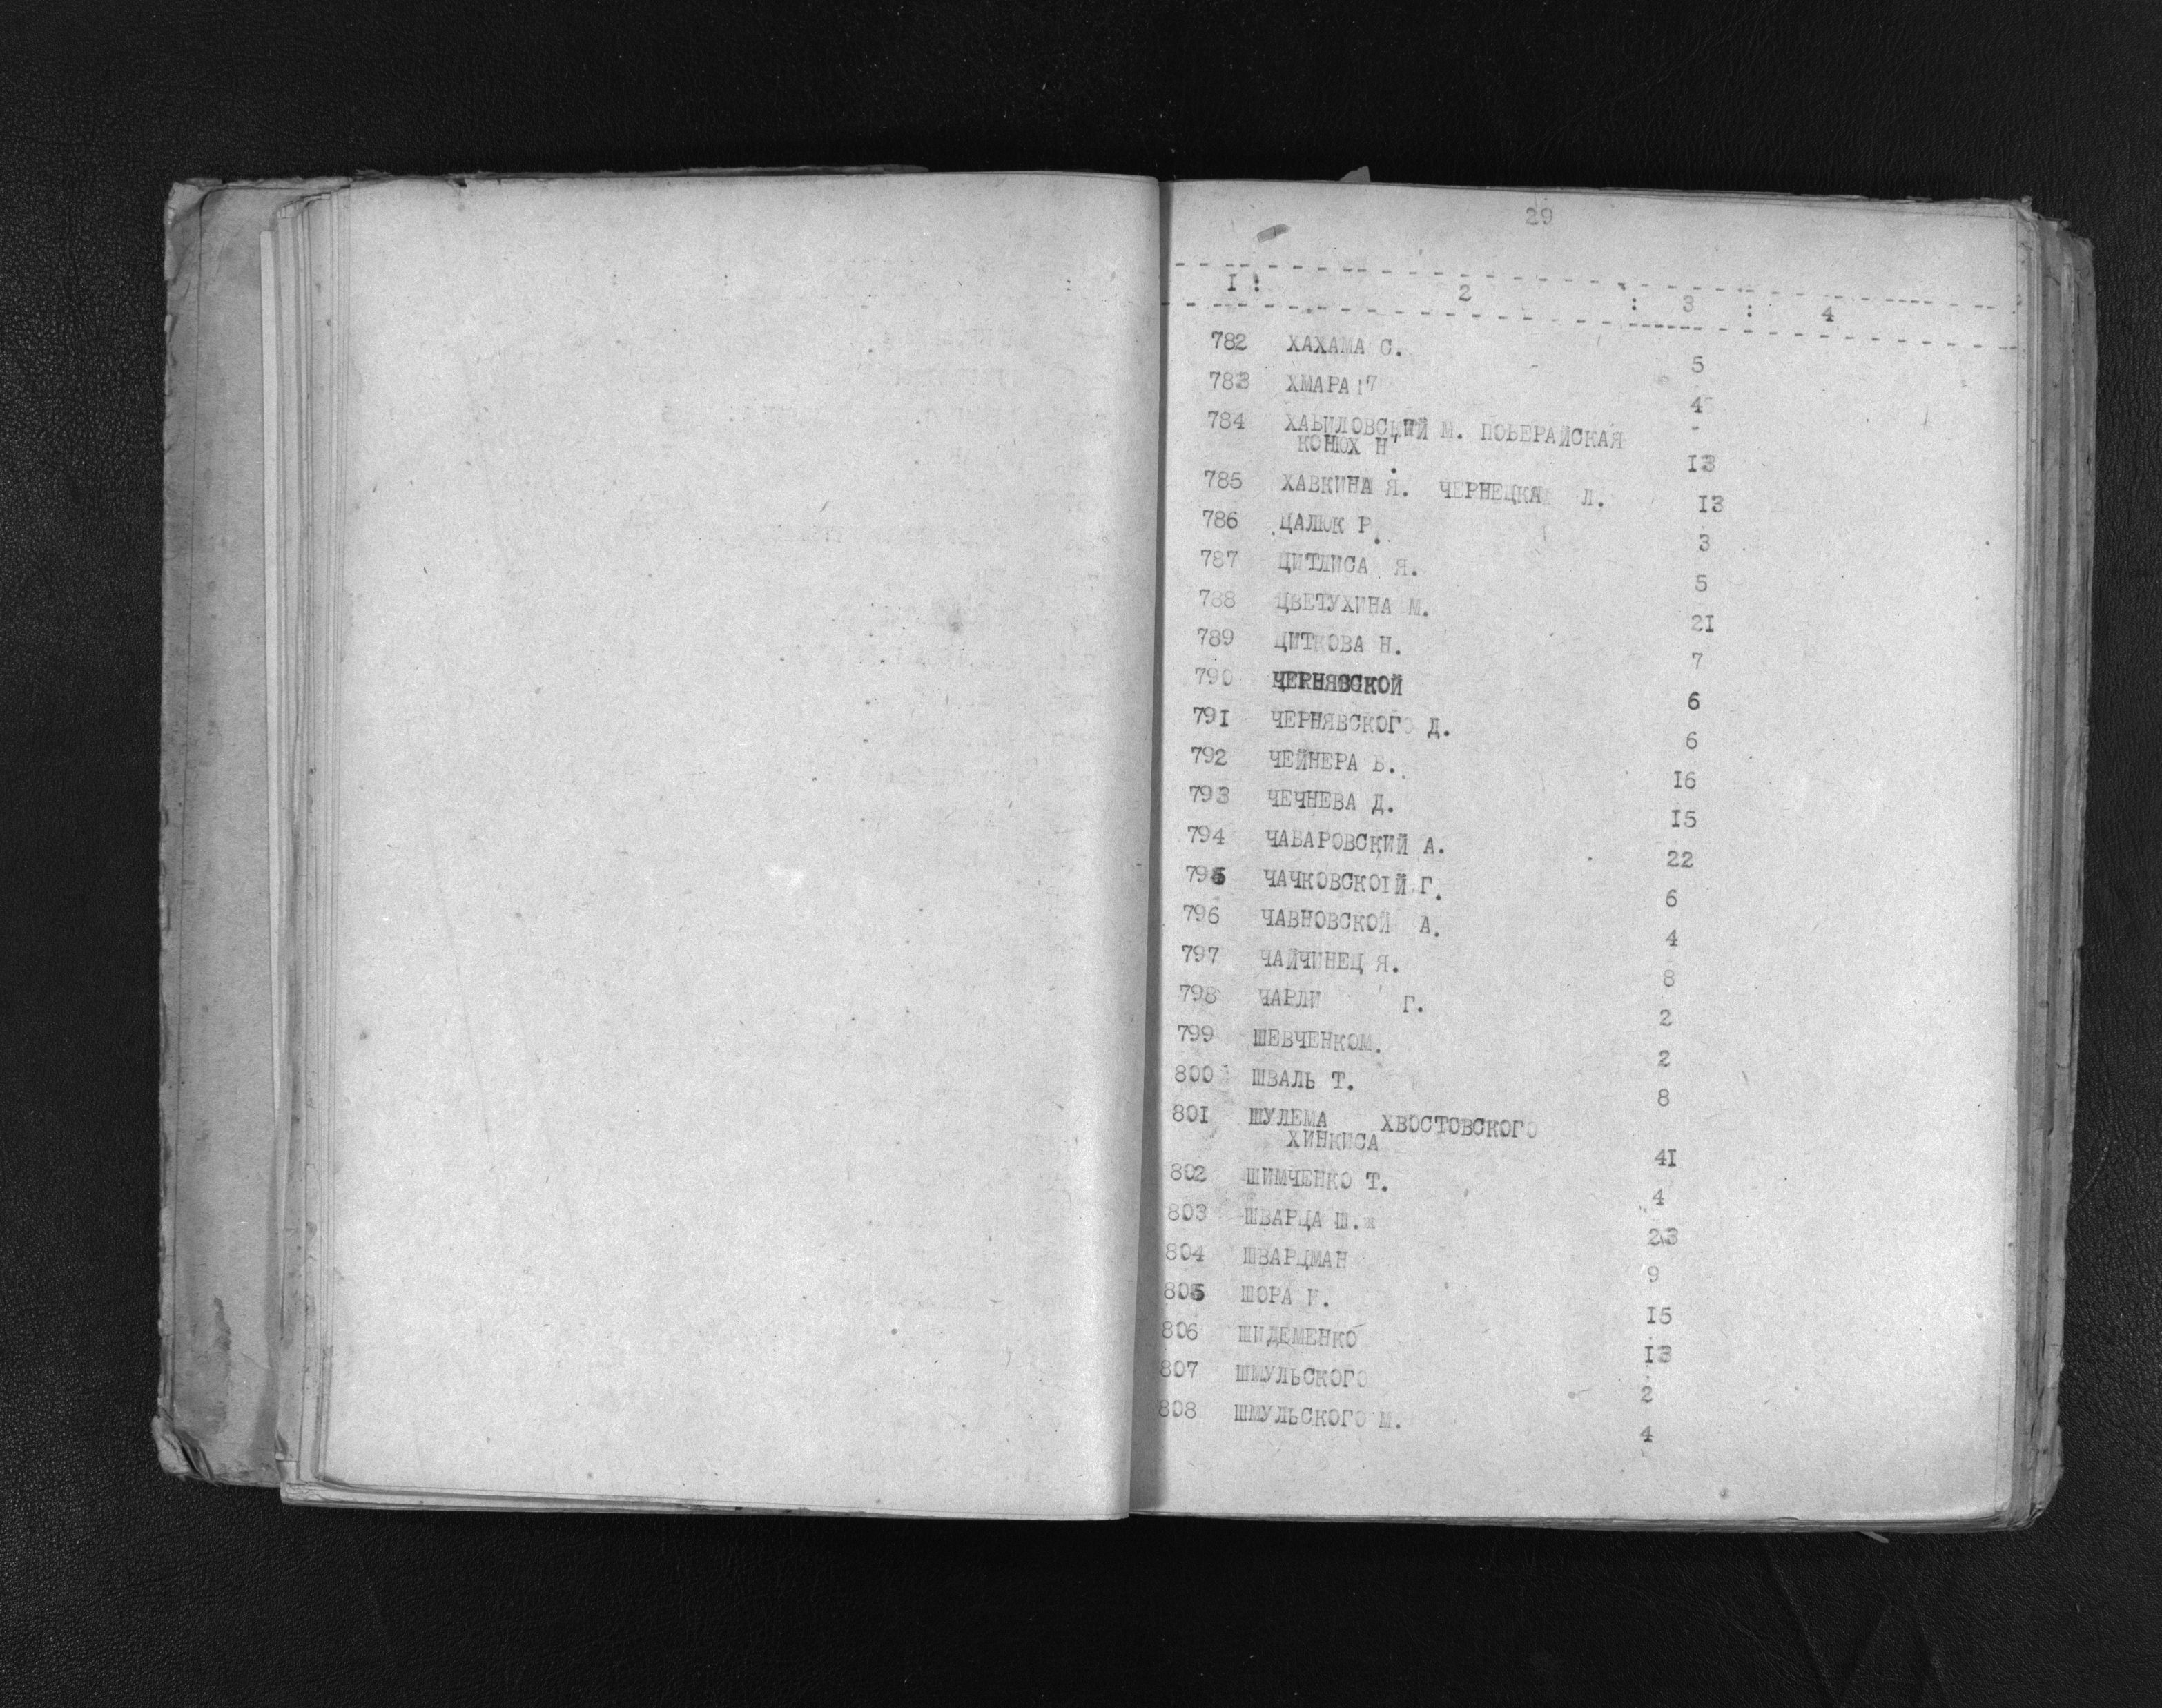 29
I : 2 : 3 : 4
782 ХАХАМА С. 5
783 ХМАРА 4
784 ХАБИЛОВСКИЙ М. ПОБЕРАЙСКАЯ
КОНЮХ Н. 13
785 ХАВКИНА Я. ЧЕРНЕЦКАЯ Л. I3
786 ЦАЛЮК Р. 3
787 ЦИТЛИСА Я. 5
788 ЦВЕТУХИНА М. 2I
789 ЦИТКОВА Н. 7
790 ЧЕРНЯВСКОЙ 6
79I ЧЕРНЯВСКОГО Д. 6
792 ЧЕЙНЕРА Б. I6
793 ЧЕЧНЕВА Д. I5
794 ЧАВАРОВСКИЙ А. 22
795 ЧАЧКОВСКОIЙ Г. 6
796 ЧАВНОВСКОЙ А. 4
797 ЧАЙЧИНЕЦ Я. 8
798 ЧАРЛИ Г. 2
799 ШЕВЧЕНКОМ. 2
800 ШВАЛЬ Т. 8
80I ШУЛЕМА ХВОСТОВСКОГО
ХИНКИСА 4I
802 ШИМЧЕНКО Т. 4
803 ШВАРЦА Ш. 23
804 ШВАРЦМАН 9
805 ШОРА И. I5
806 ШИДЕМЕНКО I3
807 ШМУЛЬСКОГО 2
808 ШМУЛЬСКОГО М. 4